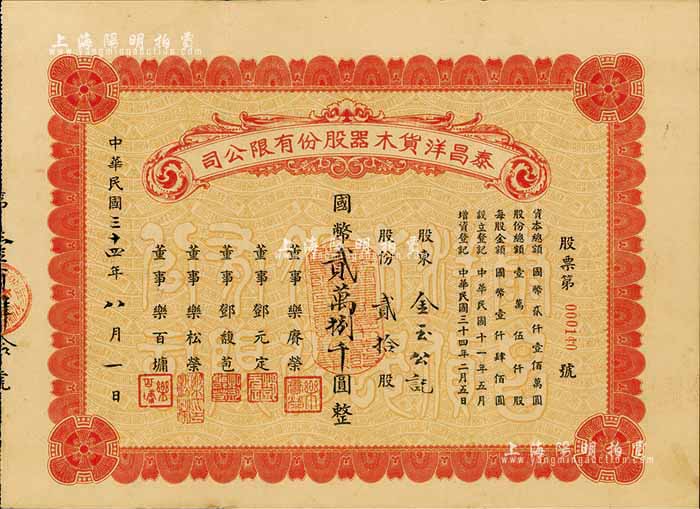 上海陽明拍賣
www.yangmingauction.com
泰昌洋貨木器股份有限公司
股票第 000140 號
資本總額 國幣貳仟壹佰萬圓
股份總額 壹萬伍仟股
每股金額 國幣壹仟肆佰圓
設立登記 中華民國十一年五月
增資登記 中華民國三十四年二月五日
股東 金玉公記
股份 貳拾股
國幣貳萬捌千圓整
董事 樂賡榮
董事 鄧元定
董事 鄧馥苞
董事 樂松榮
董事 樂百墉
中華民國三十四年八月一日
上海陽明拍賣
上海陽明拍賣
www.yangmingauction.com